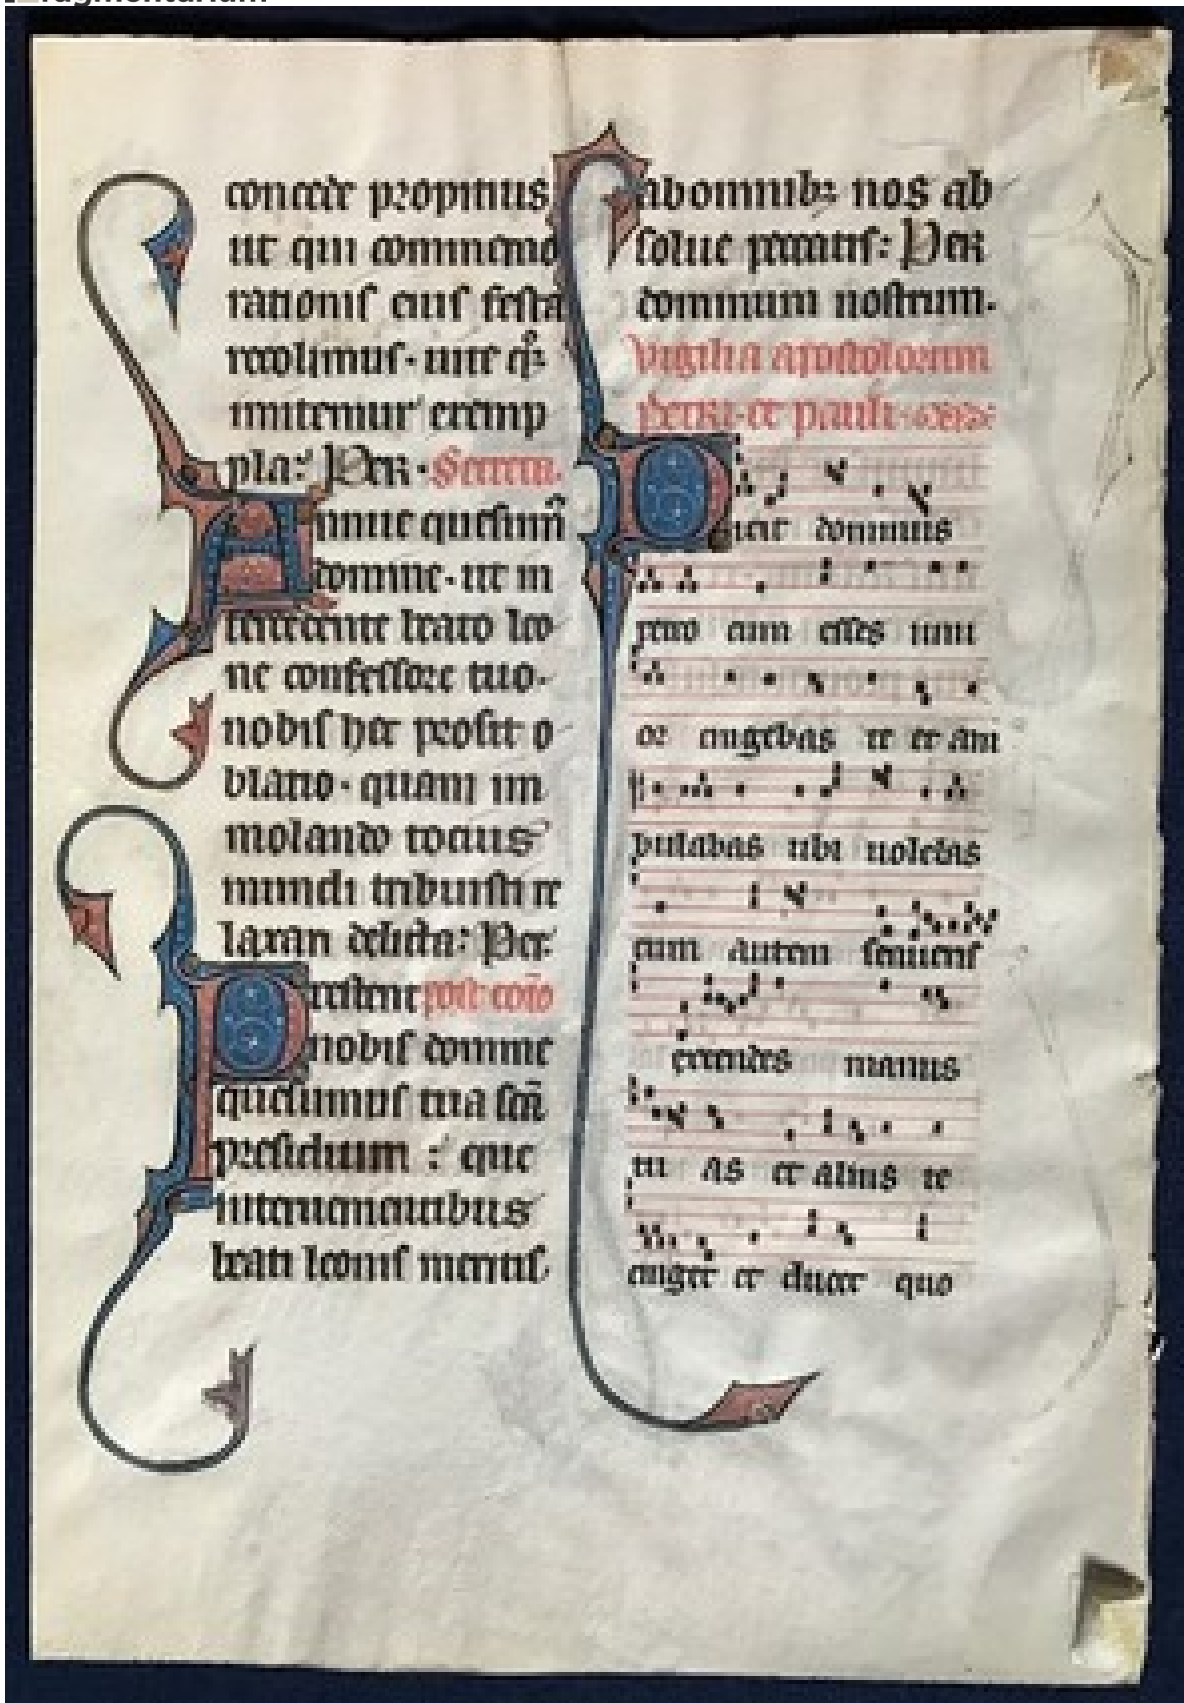 concede propitius
ut qui commemo
rationis eius festa
recolimus. uite q3
imitemur exemp
pla: Per. Secreta.
Annue quesum̄
domine. ut in
tercedente beato leo
ne confessore tuo.
nobis hec prosit o
blatio. quam im
molando tocius
mundi tribuisti re
laxari delicta: Per
Pretende post com̄
nobis domine
quesumus tua scā
presidium: que
interuenientibus
beati leonis meritis.
ab omnib3 nos ab
solue peccatis: Per
dominum nostrum.
Vigilia apostolorum
petri. et pauli.
Dicit dominus
petro cum esses iuni
or cingebas te et am
bulabas ubi uolebas
cum autem senueris
extendes manus
tu as et alius te
cinget et ducet quo